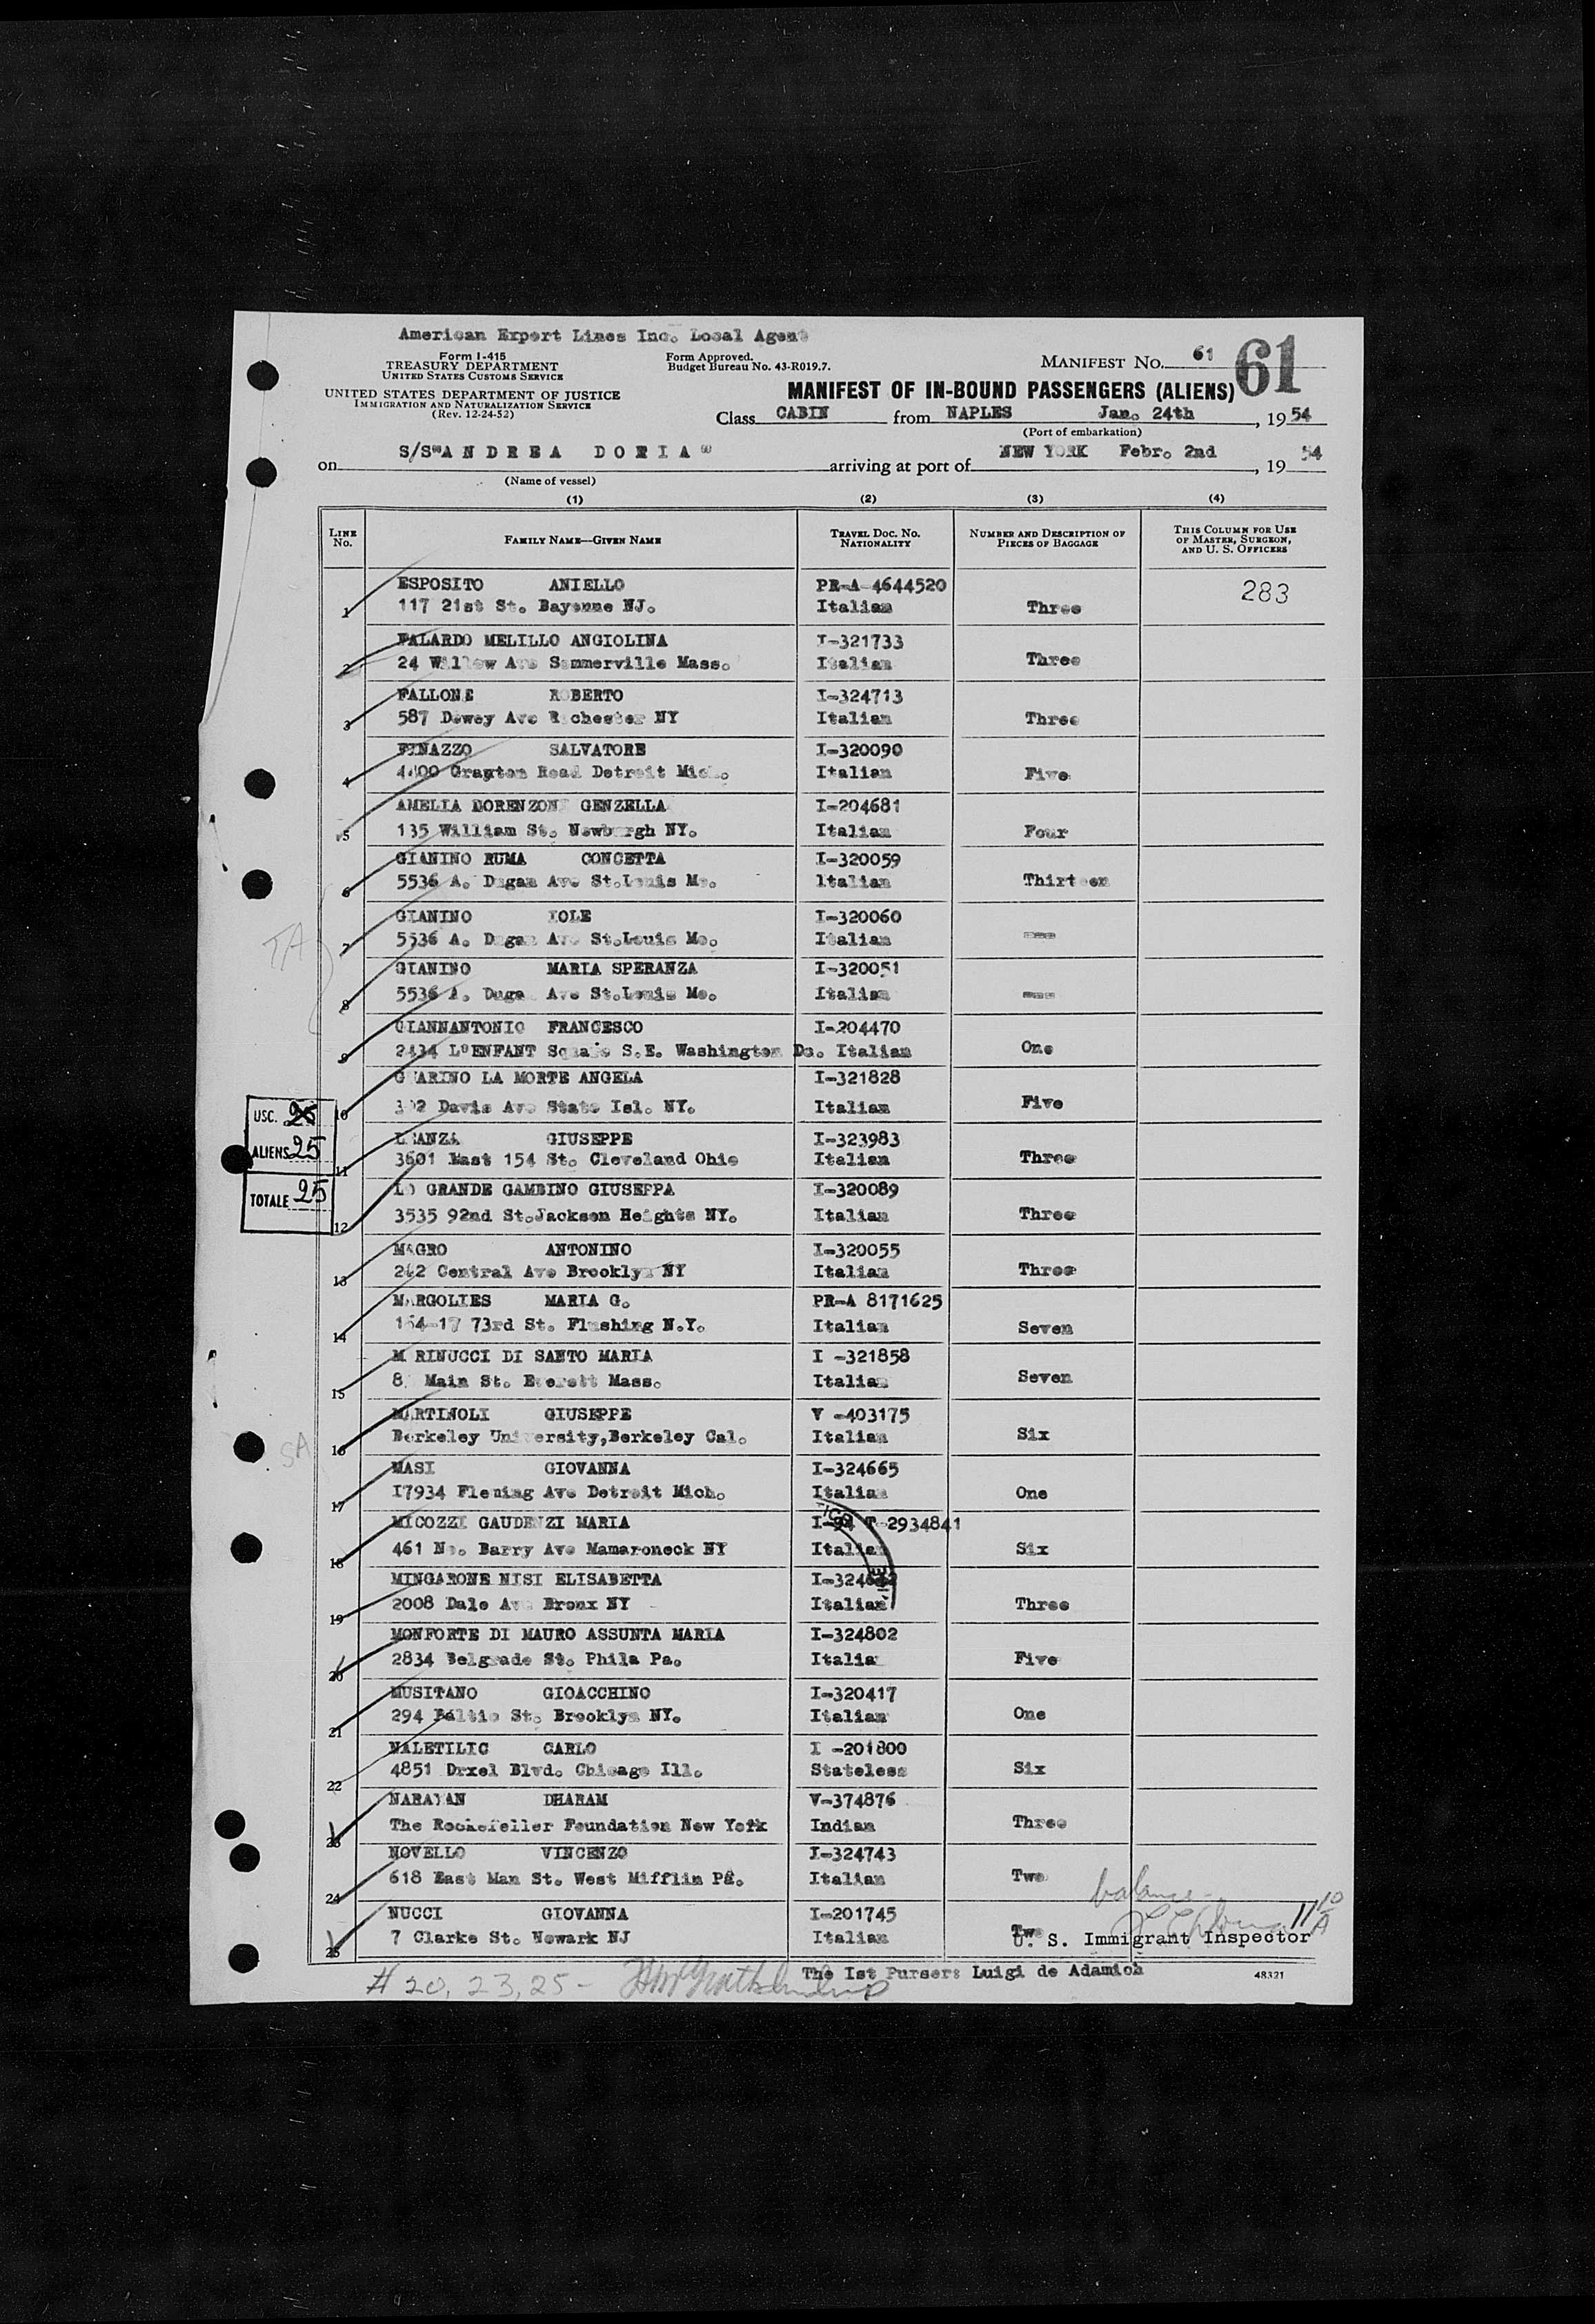 American Export Lines Inc. Local Agent
Form I-415
TREASURY DEPARTMENT
UNITED STATES CUSTOMS SERVICE
Form Approved.
Budget Bureau No. 43-R019.7.
MANIFEST No. 61 61
UNITED STATES DEPARTMENT OF JUSTICE
IMMIGRATION AND NATURALIZATION SERVICE
(Rev. 12-24-52)
MANIFEST OF IN-BOUND PASSENGERS (ALIENS)
Class CABIN from NAPLES Jan. 24th, 1954
(Port of embarkation)
on S/S "ANDREA DORIA" arriving at port of NEW YORK Febr. 2nd, 19 54
(Name of vessel)
(1) (2) (3) (4)
LINE No. FAMILY NAME—GIVEN NAME TRAVEL DOC. No. NATIONALITY NUMBER AND DESCRIPTION OF PIECES OF BAGGAGE THIS COLUMN FOR USE OF MASTER, SURGEON, AND U. S. OFFICERS
ESPOSITO ANIELLO PR-A 4644520 283
1 117 21st St. Bayonne NJ. Italian Three
FALARDO MELILLO ANGIOLINA I-321733
2 24 Willow Ave Sommerville Mass. Italian Three
FALLONE ROBERTO I-324713
3 587 Dewey Ave Rochester NY Italian Three
FINAZZO SALVATORE I-320090
4 Grayton Road Detroit Mich. Italian Five
AMELIA DORENZONI GENZELLA I-204681
5 135 William St. Newburgh NY. Italian Four
GIANINO RUMA CONCETTA I-320059
6 5536 A. Dugan Ave St.Louis Mo. Italian Thirteen
GIANINO IOLE I-320060
7 5536 A. Dugan Ave St.Louis Mo. Italian ---
GIANINO MARIA SPERANZA I-320051
8 5536 A. Dugan Ave St.Louis Mo. Italian ---
GIANNANTONIO FRANCESCO I-204470
9 2434 L'ENFANT Square S.E. Washington Dc. Italian One
GUARINO LA MORTE ANGELA I-321828
10 Davis Ave State Isl. NY. Italian Five
LEANZA GIUSEPPE I-323983
11 3601 East 154 St. Cleveland Ohio Italian Three
LO GRANDE GAMBINO GIUSEPPA I-320089
12 3535 92nd St.Jackson Heights NY. Italian Three
MAGRO ANTONINO I-320055
13 Central Ave Brooklyn NY Italian Three
MARGOLIES MARIA G. PR-A 8171625
14 164-17 73rd St. Flushing N.Y. Italian Seven
MARINUCCI DI SANTO MARIA I -321858
15 Main St. Everett Mass. Italian Seven
MARTINOLI GIUSEPPE V -403175
16 Berkeley University,Berkeley Cal. Italian Six
MASI GIOVANNA I-324665
17 17934 Fleming Ave Detroit Mich. Italian One
MICOZZI GAUDENZI MARIA I-94 T-2934841
18 461 No. Barry Ave Mamaroneck NY Italian Six
MINGARONE NISI ELISABETTA
19 2008 Dale Ave Bronx NY Italian Three
MONFORTE DI MAURO ASSUNTA MARIA I-324802
20 2834 Belgrade St. Phila Pa. Italian Five
MUSITANO GIOACCHINO I-320417
21 294 Baltic St. Brooklyn NY. Italian One
NALETILIC CARLO I -201800
22 4851 Drxel Blvd. Chicago Ill. Stateless Six
NARAYAN DHARAM V-374876
23 The Rockefeller Foundation New York Indian Three
NOVELLO VINCENZO I-324743
24 618 East Man St. West Mifflin Pa. Italian Two
NUCCI GIOVANNA I-201745
25 7 Clarke St. Newark NJ Italian Two
balance
U. S. Immigrant Inspector
The Ist Purser: Luigi de Adamich
48321
# 20, 23, 25 -
USC. 25
ALIENS 25
TOTALE 25
TA
SA